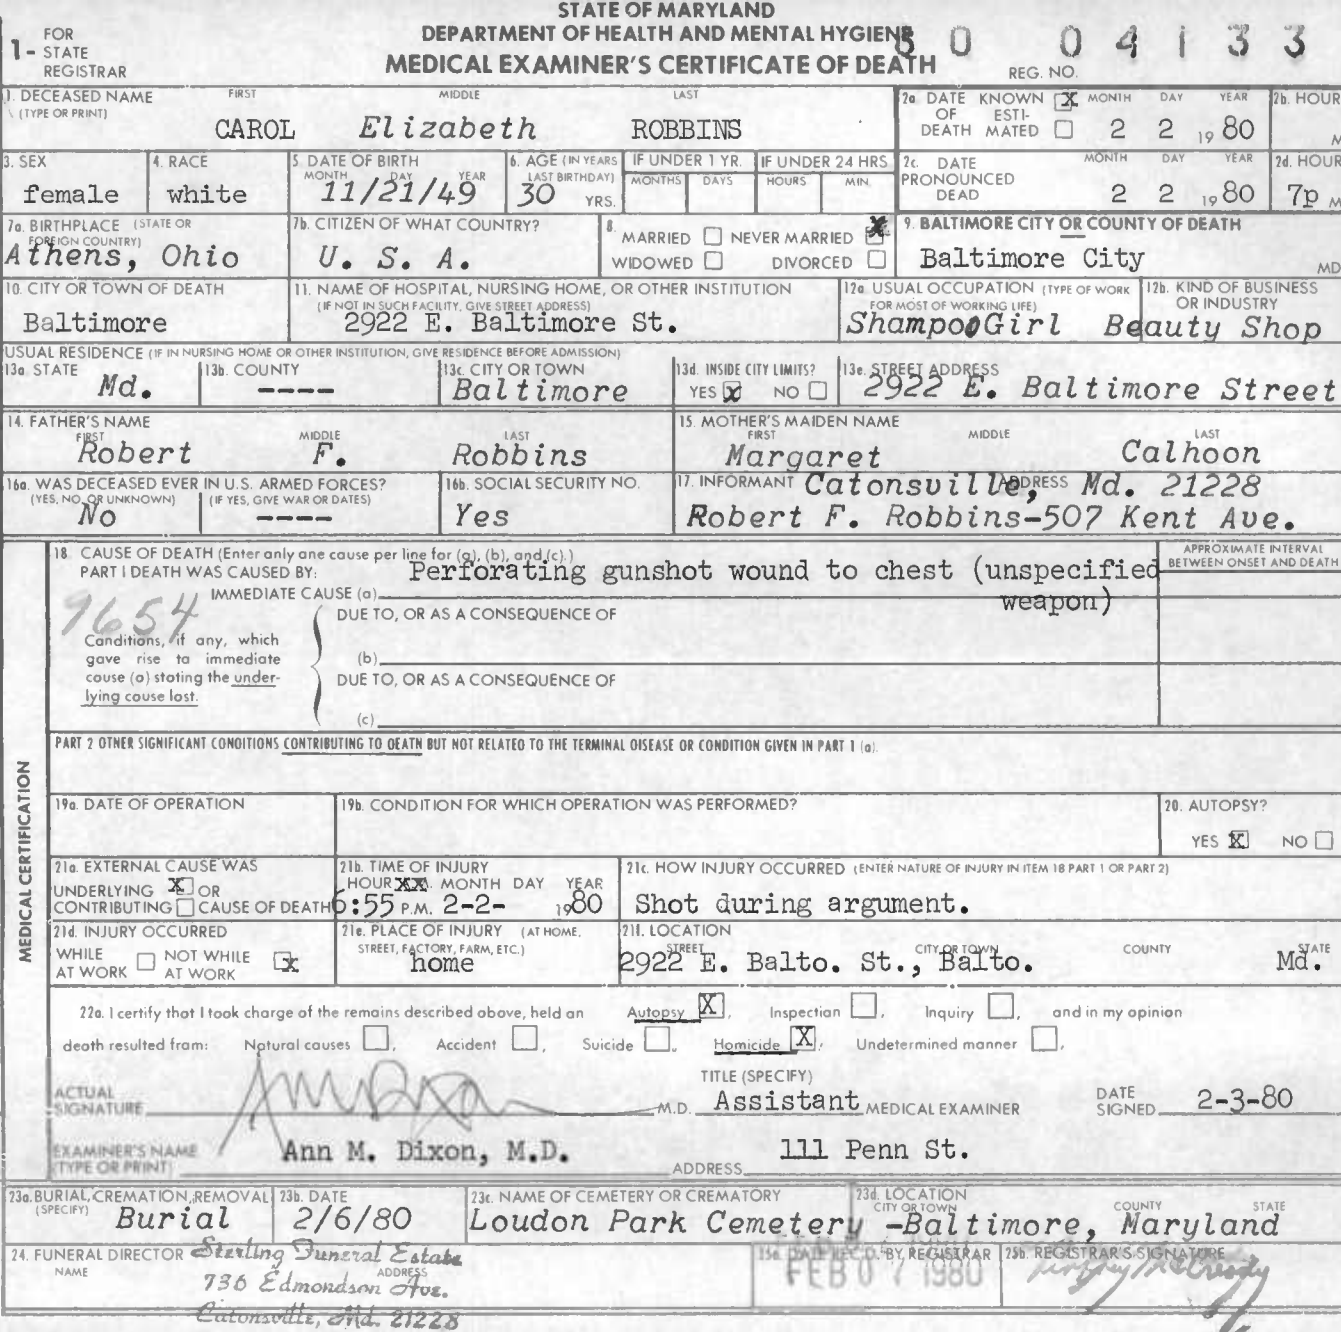 STATE OF MARYLAND
DEPARTMENT OF HEALTH AND MENTAL HYGIENE
MEDICAL EXAMINER'S CERTIFICATE OF DEATH
1- FOR STATE REGISTRAR
REG. NO. 80 04133
1. DECEASED NAME (TYPE OR PRINT) FIRST MIDDLE LAST
CAROL Elizabeth ROBBINS
2a DATE OF DEATH KNOWN X ESTIMATED MONTH DAY YEAR
2 2 1980
2b. HOUR M
3. SEX
female
4. RACE
white
5. DATE OF BIRTH MONTH DAY YEAR
11/21/49
6. AGE (IN YEARS LAST BIRTHDAY)
30 YRS.
IF UNDER 1 YR. MONTHS DAYS
IF UNDER 24 HRS HOURS MIN.
2c. DATE PRONOUNCED DEAD MONTH DAY YEAR
2 2 1980
2d. HOUR
7p M
7a. BIRTHPLACE (STATE OR FOREIGN COUNTRY)
Athens, Ohio
7b. CITIZEN OF WHAT COUNTRY?
U. S. A.
8. MARRIED NEVER MARRIED X
WIDOWED DIVORCED
9. BALTIMORE CITY OR COUNTY OF DEATH
Baltimore City MD
10. CITY OR TOWN OF DEATH
Baltimore
11. NAME OF HOSPITAL, NURSING HOME, OR OTHER INSTITUTION
(IF NOT IN SUCH FACILITY, GIVE STREET ADDRESS)
2922 E. Baltimore St.
12a USUAL OCCUPATION (TYPE OF WORK FOR MOST OF WORKING LIFE)
Shampoo Girl
12b. KIND OF BUSINESS OR INDUSTRY
Beauty Shop
USUAL RESIDENCE (IF IN NURSING HOME OR OTHER INSTITUTION, GIVE RESIDENCE BEFORE ADMISSION)
13a. STATE
Md.
13b. COUNTY
----
13c. CITY OR TOWN
Baltimore
13d. INSIDE CITY LIMITS?
YES X NO
13e. STREET ADDRESS
2922 E. Baltimore Street
14. FATHER'S NAME FIRST MIDDLE LAST
Robert F. Robbins
15. MOTHER'S MAIDEN NAME FIRST MIDDLE LAST
Margaret Calhoon
16a. WAS DECEASED EVER IN U.S. ARMED FORCES?
(YES, NO, OR UNKNOWN) (IF YES, GIVE WAR OR DATES)
No ----
16b. SOCIAL SECURITY NO.
Yes
17. INFORMANT ADDRESS
Catonsville, Md. 21228
Robert F. Robbins-507 Kent Ave.
MEDICAL CERTIFICATION
18. CAUSE OF DEATH (Enter only one cause per line for (a), (b), and (c).)
PART I DEATH WAS CAUSED BY:
IMMEDIATE CAUSE (a) Perforating gunshot wound to chest (unspecified
weapon)
APPROXIMATE INTERVAL BETWEEN ONSET AND DEATH
9654
Conditions, if any, which
gave rise to immediate
cause (a) stating the under-
lying cause last.
DUE TO, OR AS A CONSEQUENCE OF
(b)
DUE TO, OR AS A CONSEQUENCE OF
(c)
PART 2 OTHER SIGNIFICANT CONDITIONS CONTRIBUTING TO DEATH BUT NOT RELATED TO THE TERMINAL DISEASE OR CONDITION GIVEN IN PART 1 (a).
19a. DATE OF OPERATION
19b. CONDITION FOR WHICH OPERATION WAS PERFORMED?
20. AUTOPSY?
YES X NO
21a. EXTERNAL CAUSE WAS
UNDERLYING X OR
CONTRIBUTING CAUSE OF DEATH
21b. TIME OF INJURY
HOUR XX. MONTH DAY YEAR
6:55 P.M. 2-2- 1980
21c. HOW INJURY OCCURRED (ENTER NATURE OF INJURY IN ITEM 18 PART 1 OR PART 2)
Shot during argument.
21d. INJURY OCCURRED
WHILE AT WORK NOT WHILE AT WORK X
21e. PLACE OF INJURY (AT HOME, STREET, FACTORY, FARM, ETC.)
home
21f. LOCATION STREET CITY OR TOWN COUNTY STATE
2922 E. Balto. St., Balto. Md.
22a. I certify that I took charge of the remains described above, held an Autopsy X, Inspection, Inquiry, and in my opinion
death resulted from: Natural causes, Accident, Suicide, Homicide X, Undetermined manner,
ACTUAL SIGNATURE M.D.
TITLE (SPECIFY)
Assistant MEDICAL EXAMINER
DATE SIGNED 2-3-80
EXAMINER'S NAME (TYPE OR PRINT) Ann M. Dixon, M.D.
ADDRESS 111 Penn St.
23a. BURIAL, CREMATION, REMOVAL (SPECIFY)
Burial
23b. DATE
2/6/80
23c. NAME OF CEMETERY OR CREMATORY
Loudon Park Cemetery
23d. LOCATION CITY OR TOWN COUNTY STATE
-Baltimore, Maryland
24. FUNERAL DIRECTOR NAME ADDRESS
Sterling Funeral Estate
736 Edmondson Ave.
Catonsville, Md. 21228
25a. DATE REC'D. BY REGISTRAR
FEB 07 1980
25b. REGISTRAR'S SIGNATURE